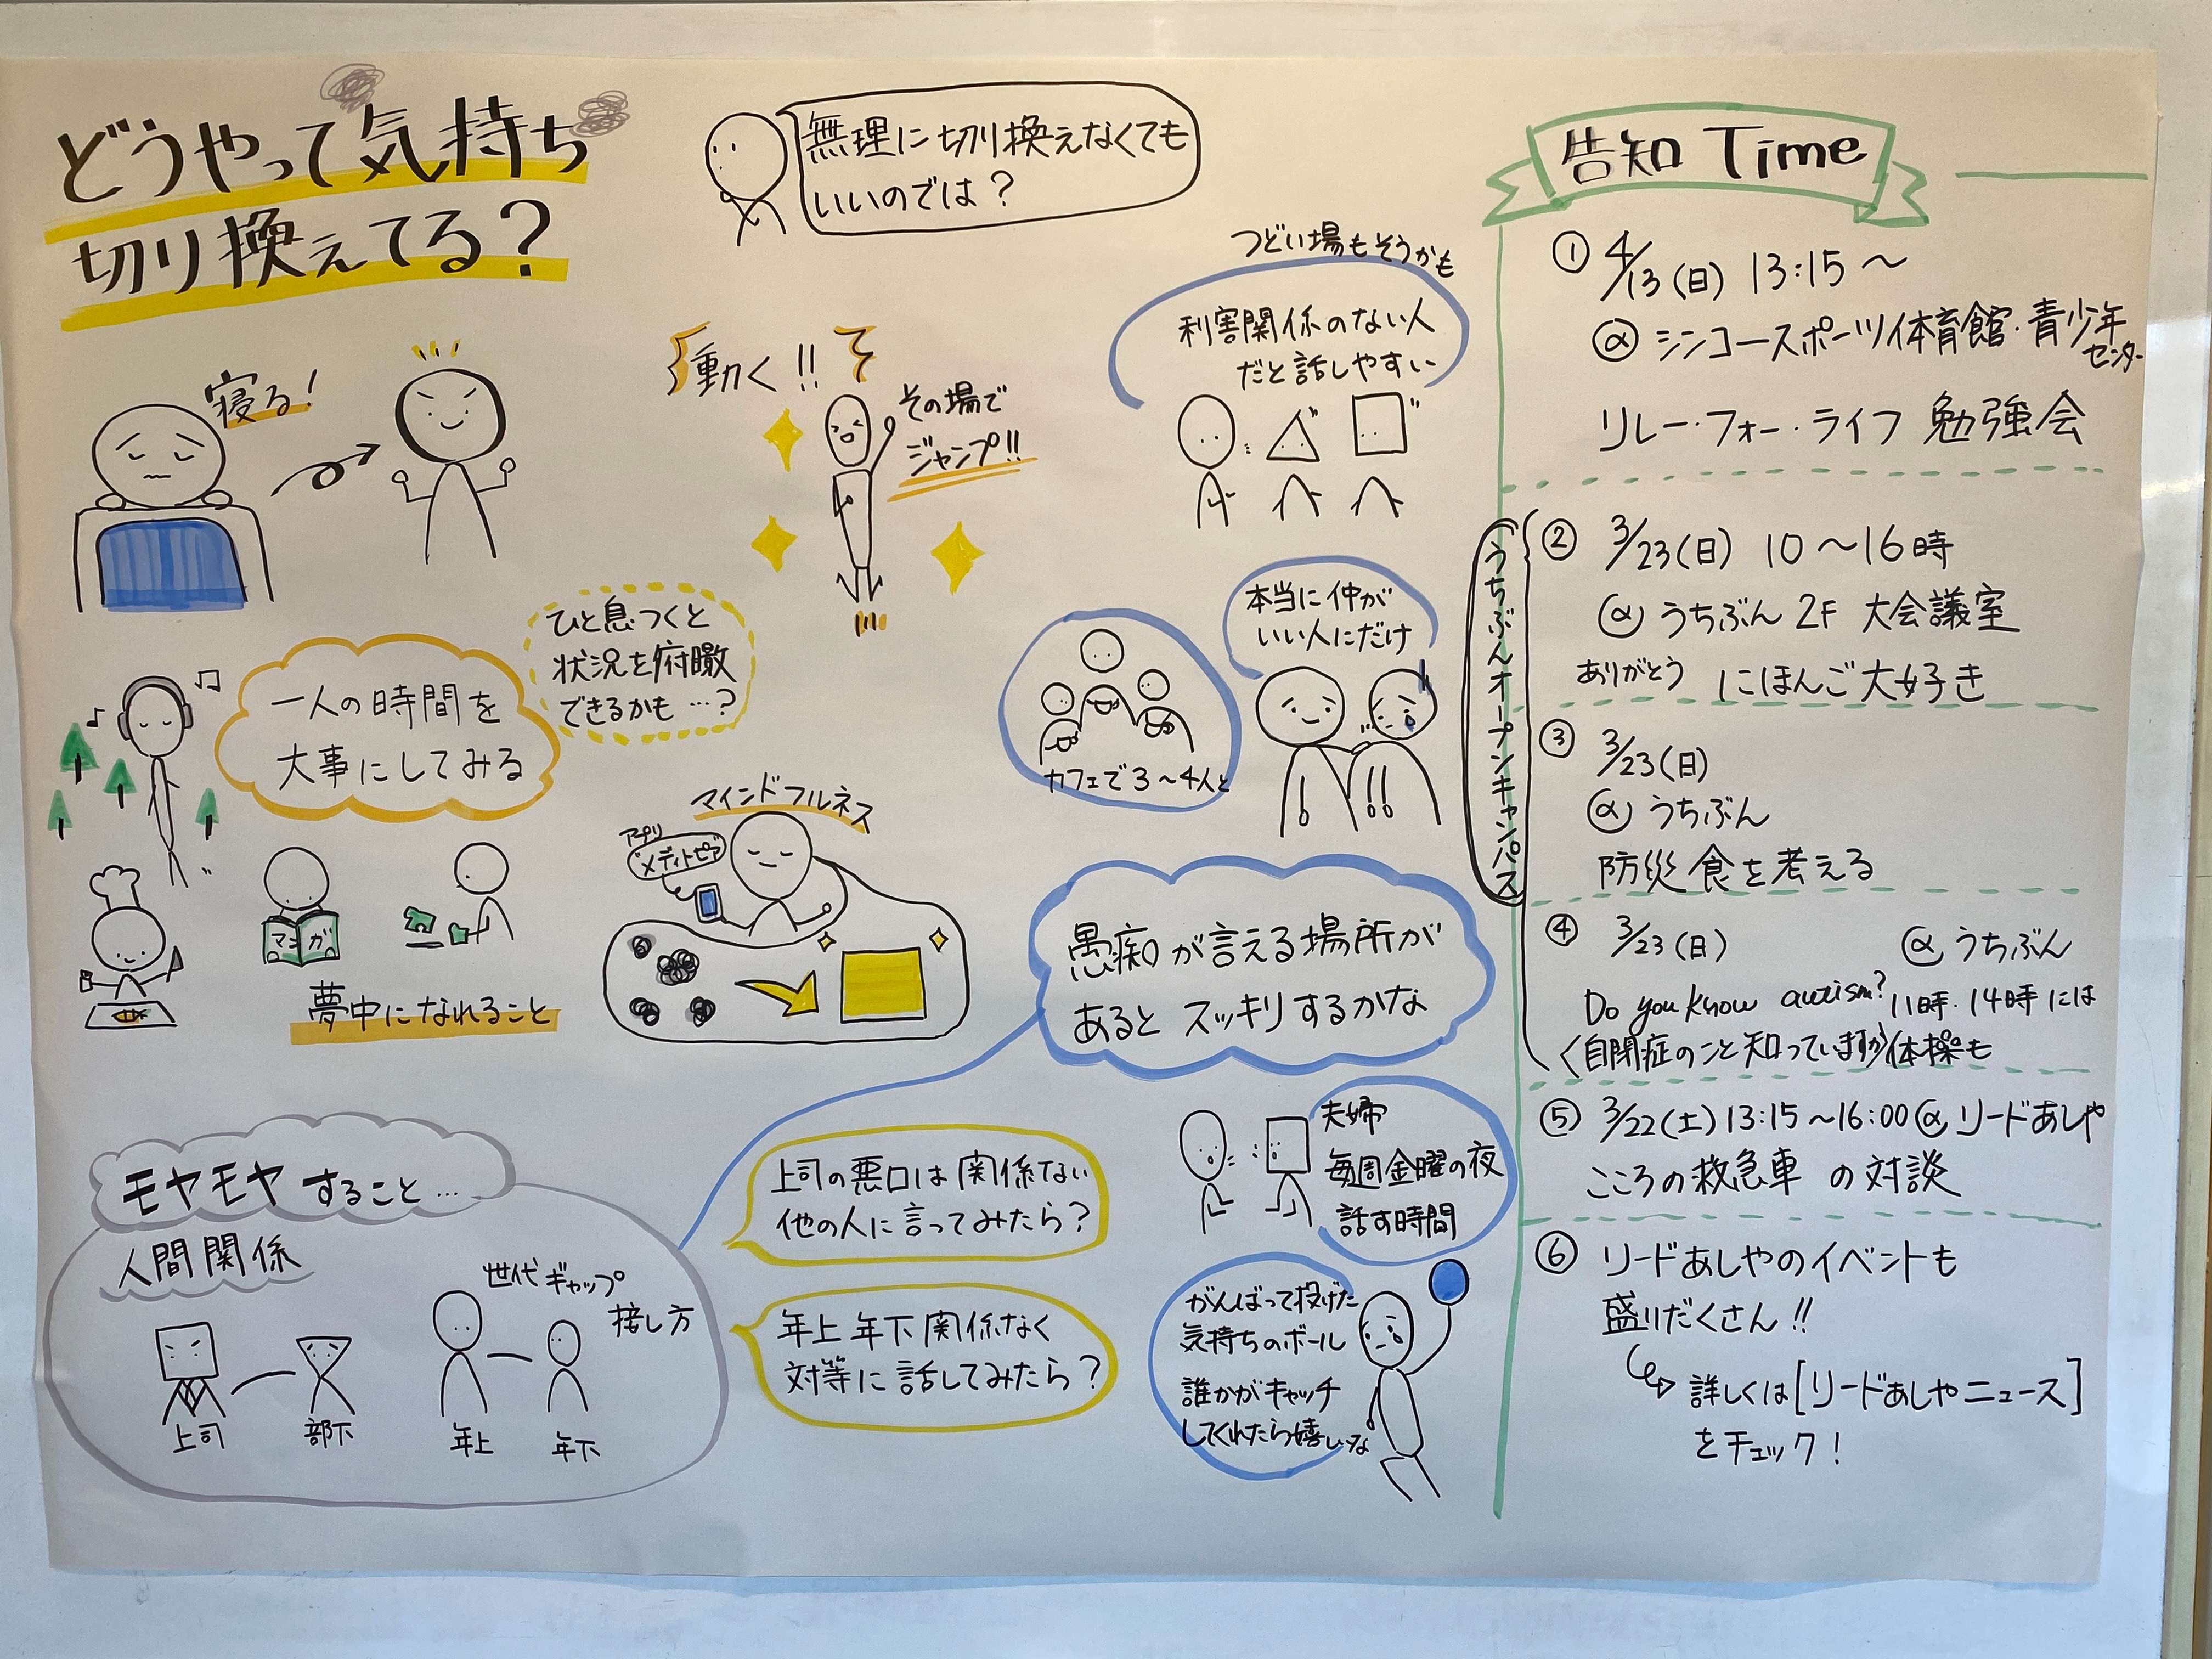 どうやって気持ち
切り換えてる?
無理に切り換えなくても
いいのでは?
寝る!
動く!!
その場で
ジャンプ!!
つどい場もそうかも
利害関係のない人
だと話しやすい
ひと息つくと
状況を俯瞰
できるかも…?
一人の時間を
大事にしてみる
マンガ
夢中になれること
マインドフルネス
アプリ
メディトピア
本当に仲が
いい人にだけ
カフェで3〜4人と
愚痴が言える場所が
あるとスッキリするかな
モヤモヤすること…
人間関係
世代ギャップ
接し方
上司
部下
年上
年下
上司の悪口は関係ない
他の人に言ってみたら?
年上年下関係なく
対等に話してみたら?
夫婦
毎週金曜の夜
話す時間
がんばって投げた
気持ちのボール
誰かがキャッチ
してくれたら嬉しいな
告知 Time
① 4/13(日) 13:15〜
@ シンコースポーツ体育館・青少年
センター
リレー・フォー・ライフ 勉強会
うちぶんオープンキャンパス
② 3/23(日) 10〜16時
@ うちぶん 2F 大会議室
ありがとう にほんご大好き
③ 3/23(日)
@ うちぶん
防災食を考える
④ 3/23(日) @ うちぶん
Do you know autism? 11時・14時には
〈自閉症のこと知っていますか〉体操も
⑤ 3/22(土) 13:15〜16:00 @ リードあしや
こころの救急車 の対談
⑥ リードあしやのイベントも
盛りだくさん!!
詳しくは[リードあしやニュース]
をチェック!